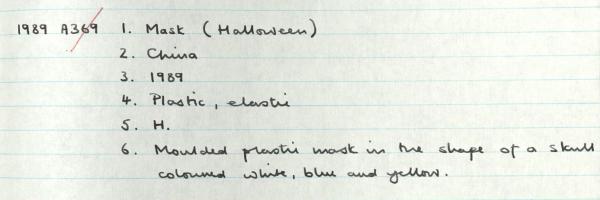 1989 A369 1. Mask (Halloween)
2. China
3. 1989
4. Plastic, elastic
5. H.
6. Moulded plastic mask in the shape of a skull
coloured white, blue and yellow.